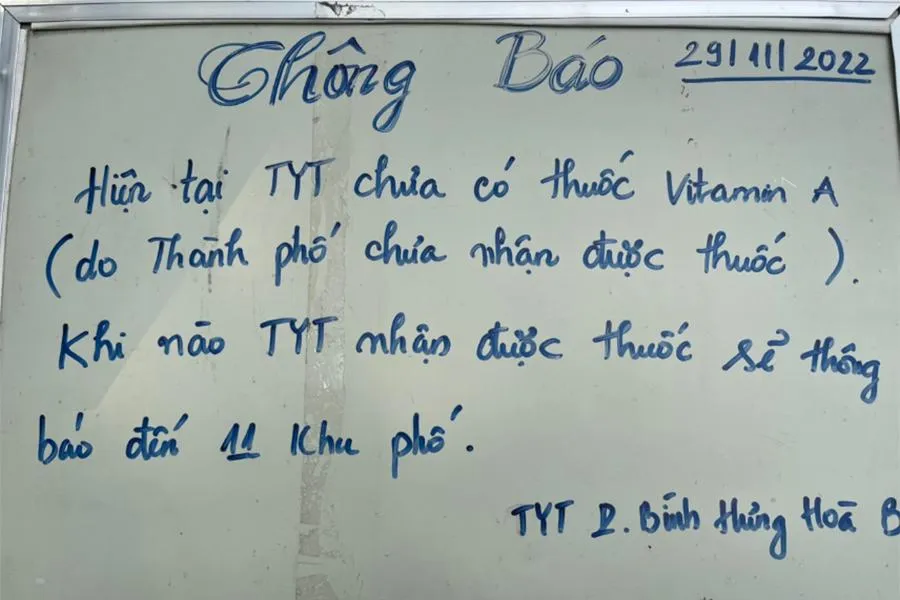 Thông Báo 29/11/2022
Hiện tại TYT chưa có thuốc Vitamin A
(do Thành phố chưa nhận được thuốc).
Khi nào TYT nhận được thuốc sẽ thông
báo đến 11 Khu phố.
TYT P. Bình Hưng Hoà B